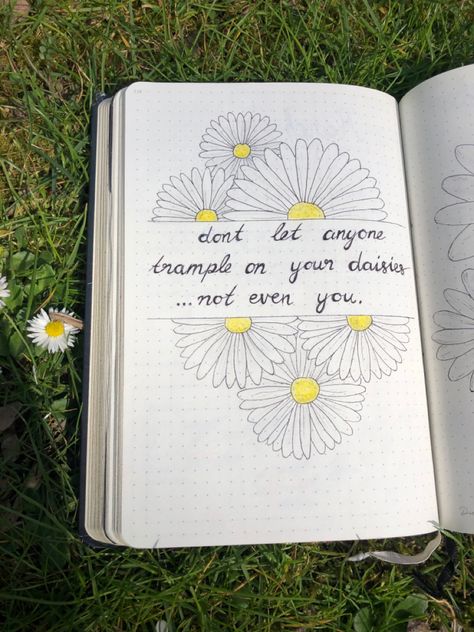 dont let anyone
trample on your daisies
...not even you.